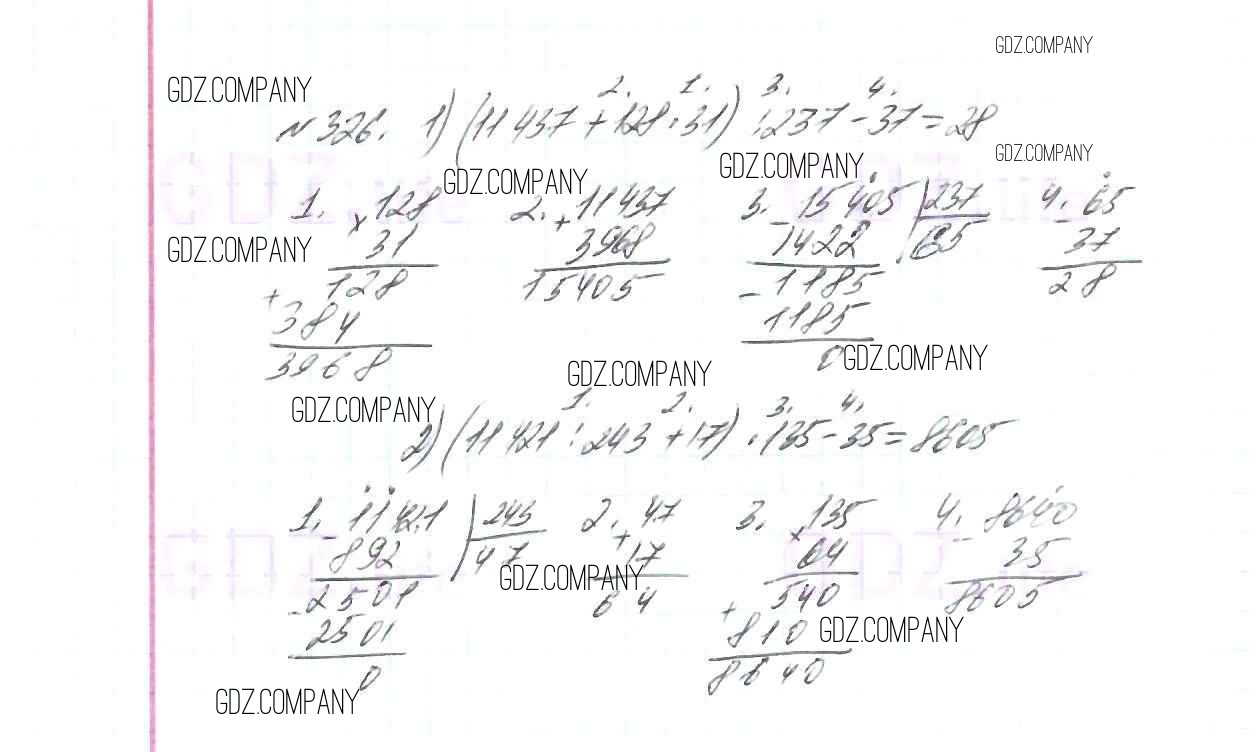 GDZ.COMPANY
GDZ.COMPANY
2. 1. 3. 4.
№326. 1) (11437+128·31) :237-37=28
GDZ.COMPANY
GDZ.COMPANY
GDZ.COMPANY
1. ×128 2. +11437 3. -15405 237 4. -65
GDZ.COMPANY
31 3968 1422 65 37
128 15405 -1185 28
+384 1185
3968 0
GDZ.COMPANY
GDZ.COMPANY
GDZ.COMPANY
1. 2. 3. 4.
2) (11421:243+17)·135-35=8605
1. -11421 243 2. +47 3. ×135 4. -8640
892 47 17 64 35
GDZ.COMPANY
-2501 64 540 8605
2501 +810
GDZ.COMPANY
0 8640
GDZ.COMPANY